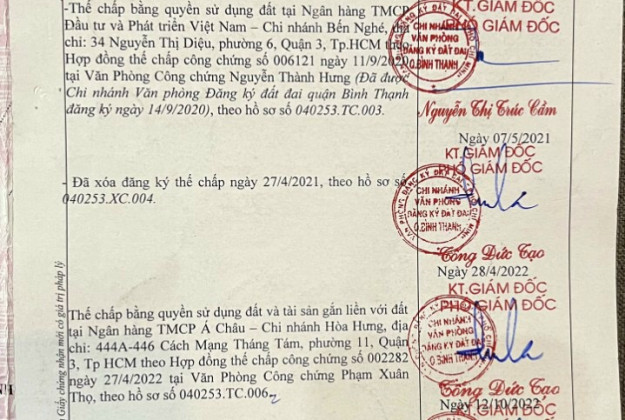 -Thế chấp bằng quyền sử dụng đất tại Ngân hàng TMCP
Đầu tư và Phát triển Việt Nam – Chi nhánh Bến Nghé, địa
chỉ: 34 Nguyễn Thị Diệu, phường 6, Quận 3, Tp.HCM theo
Hợp đồng thế chấp công chứng số 006121 ngày 11/9/2020
tại Văn Phòng Công chứng Nguyễn Thành Hưng (Đã được
Chi nhánh Văn phòng Đăng ký đất đai quận Bình Thạnh
đăng ký ngày 14/9/2020), theo hồ sơ số 040253.TC.003.
CHI NHÁNH
VĂN PHÒNG
ĐĂNG KÝ ĐẤT ĐAI
Q.BÌNH THẠNH
Nguyễn Thị Trúc Cầm
Ngày 07/5/2021
KT.GIÁM ĐỐC
PHÓ GIÁM ĐỐC
- Đã xóa đăng ký thế chấp ngày 27/4/2021, theo hồ sơ số
040253.XC.004.
VĂN PHÒNG ĐĂNG KÝ ĐẤT ĐAI
CHI NHÁNH
VĂN PHÒNG
ĐĂNG KÝ ĐẤT ĐAI
Q.BÌNH THẠNH
Tống Đức Tạo
Ngày 28/4/2022
KT.GIÁM ĐỐC
PHÓ GIÁM ĐỐC
Thế chấp bằng quyền sử dụng đất và tài sản gắn liền với đất
tại Ngân hàng TMCP Á Châu – Chi nhánh Hòa Hưng, địa
chỉ: 444A-446 Cách Mạng Tháng Tám, phường 11, Quận
3, Tp HCM theo Hợp đồng thế chấp công chứng số 002282
ngày 27/4/2022 tại Văn Phòng Công chứng Phạm Xuân
Thọ, theo hồ sơ số 040253.TC.006.
CHI NHÁNH
VĂN PHÒNG
ĐĂNG KÝ ĐẤT ĐAI
Q.BÌNH THẠNH
Tống Đức Tạo
Ngày 12/10/2022
KT.GIÁM ĐỐC
Giấy chứng nhận mới có giá trị pháp lý